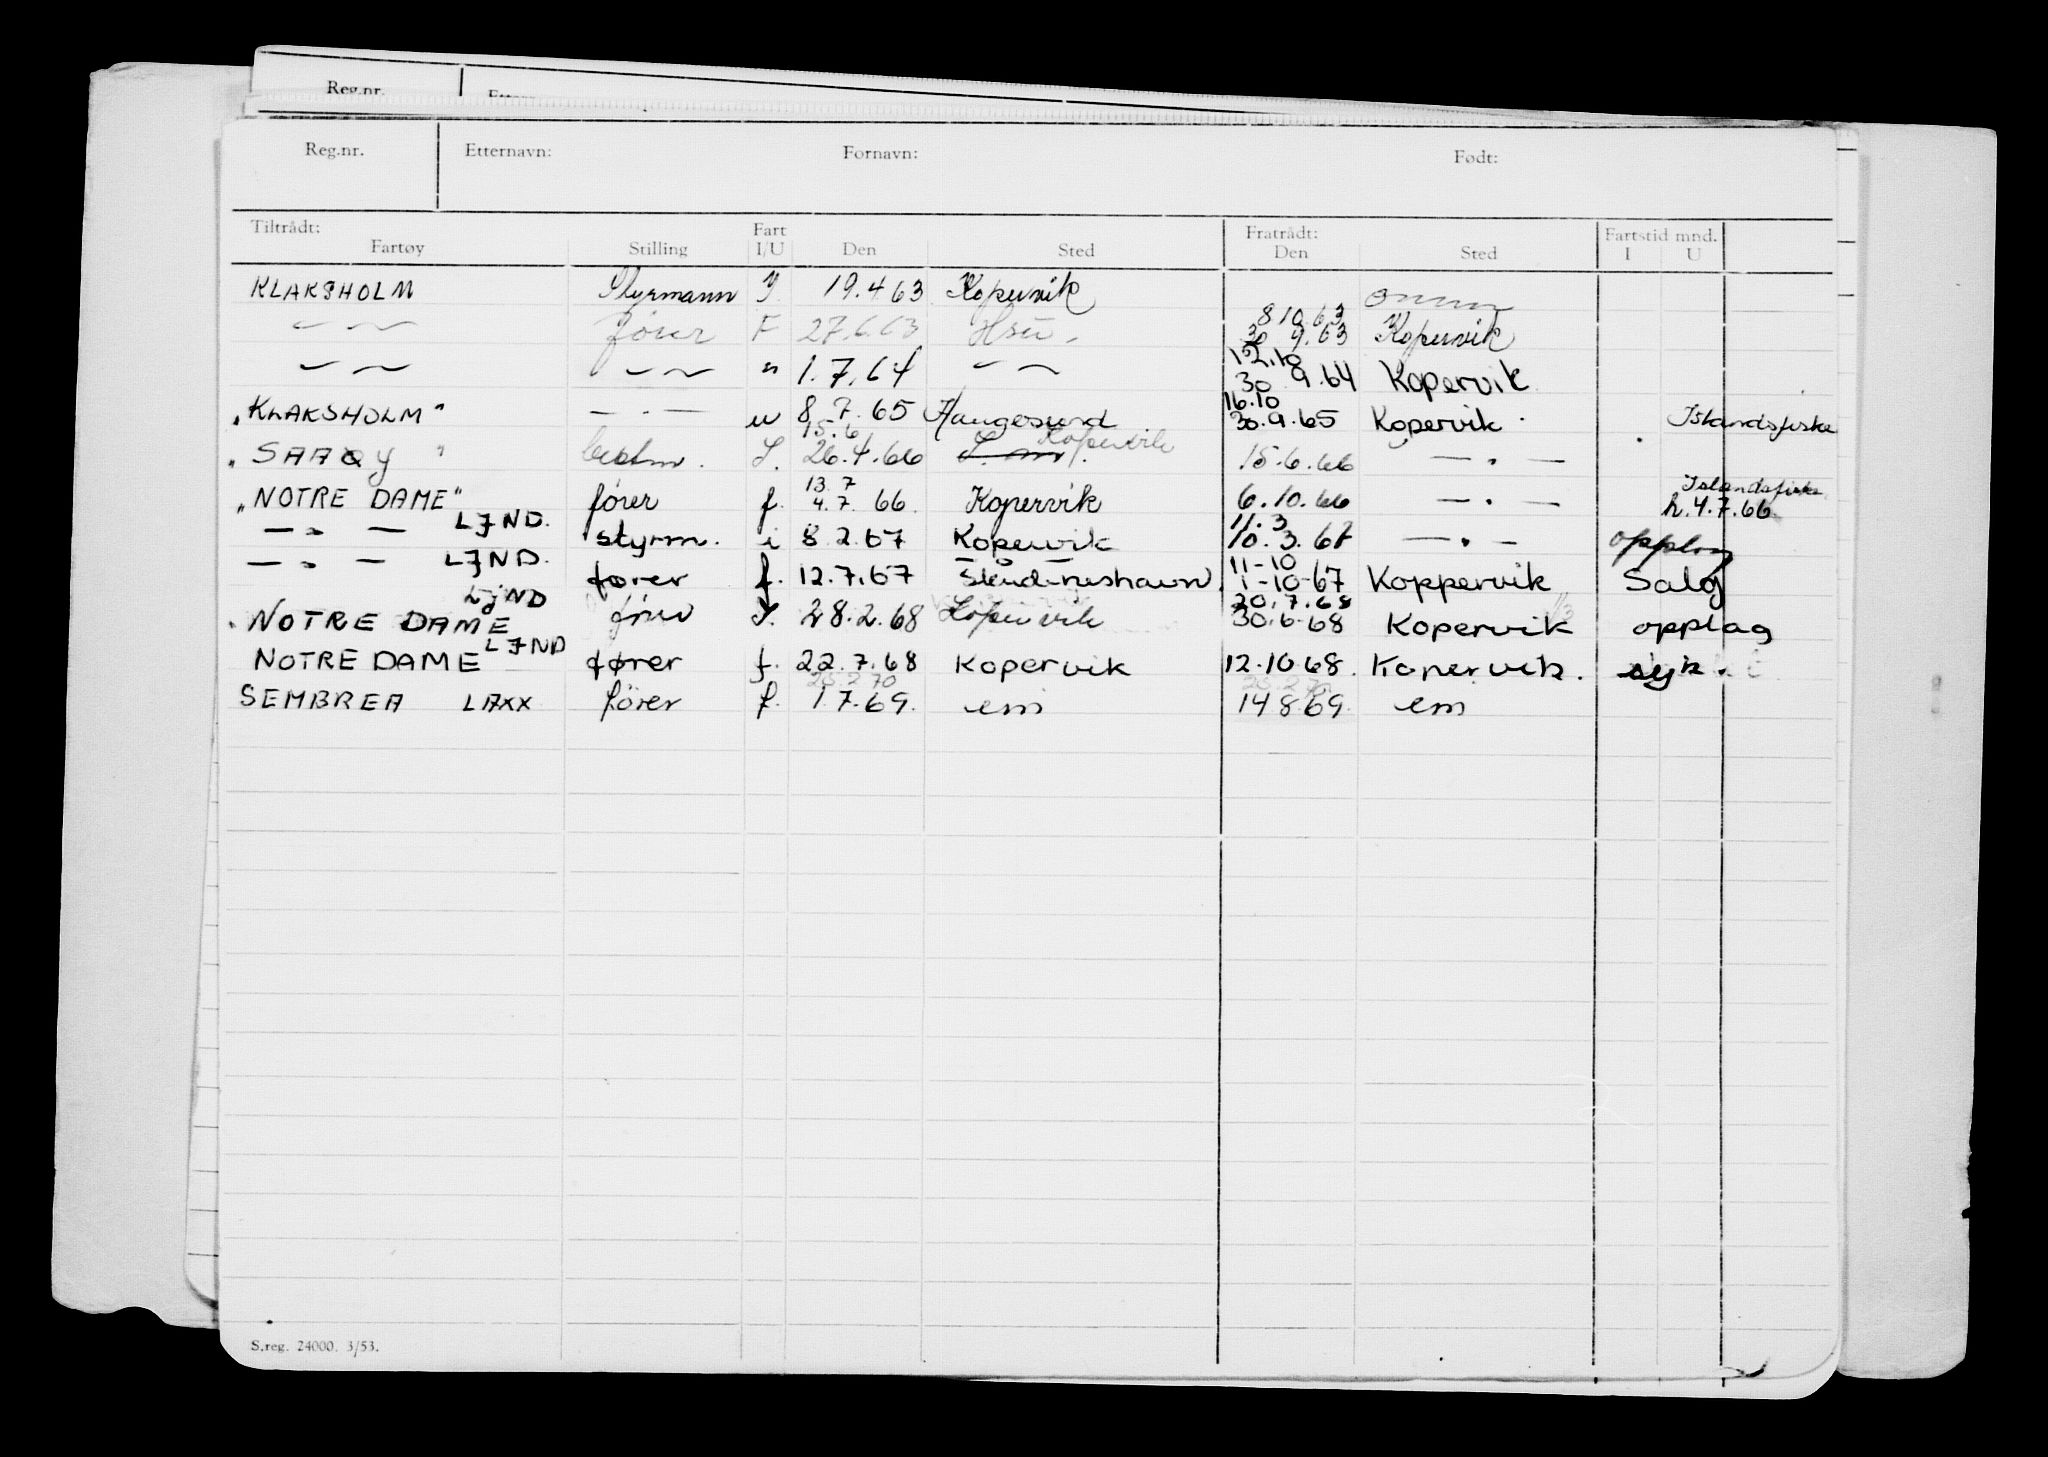 Reg.nr.
Reg.nr. Etternavn: Fornavn: Født:
Tiltrådt: Fart Fratrådt: Fartstid mnd.
Fartøy Stilling I/U Den Sted Den Sted I U
KLAKSHOLM Styrmann I. 19.4 63 Kopervik
8 10 63
— " — fører F 27.6.63 Hsu. 30 9.63 Kopervik
12.10
— " — — " — " 1.7.64 — " — 30 9.64 Kopervik
16.10
"KLAKSHOLM" — . — u 8 7.65 Haugesund 30.9.65 Kopervik Islandsfiske
15.6 Kopervik
"SAAOY" bestm. I. 26.4.66 15.6.66 — . —
13.7 Islandsfiske
"NOTRE DAME" fører f. 4.7. 66. Kopervik 6.10.66 — . — h.4.7.66
LJND. 11.3
— " — styrm. i 8.2.67 Kopervik 10.3.67 — . — opplag
— " — LJND. 11-10
fører f. 12.7.67 Skudeneshavn 1-10-67 Koppervik Salg
LJND 20.7.68
"NOTRE DAME fører I. 28.2.68 Kopervik 30.6.68 Kopervik opplag
LJND
NOTRE DAME fører f. 22.7.68 Kopervik 12.10.68. Kopervik. syk
SEMBREA LAXX fører f. 1.7.69. em 14 8.69. em
S.reg. 24000. 3/53.